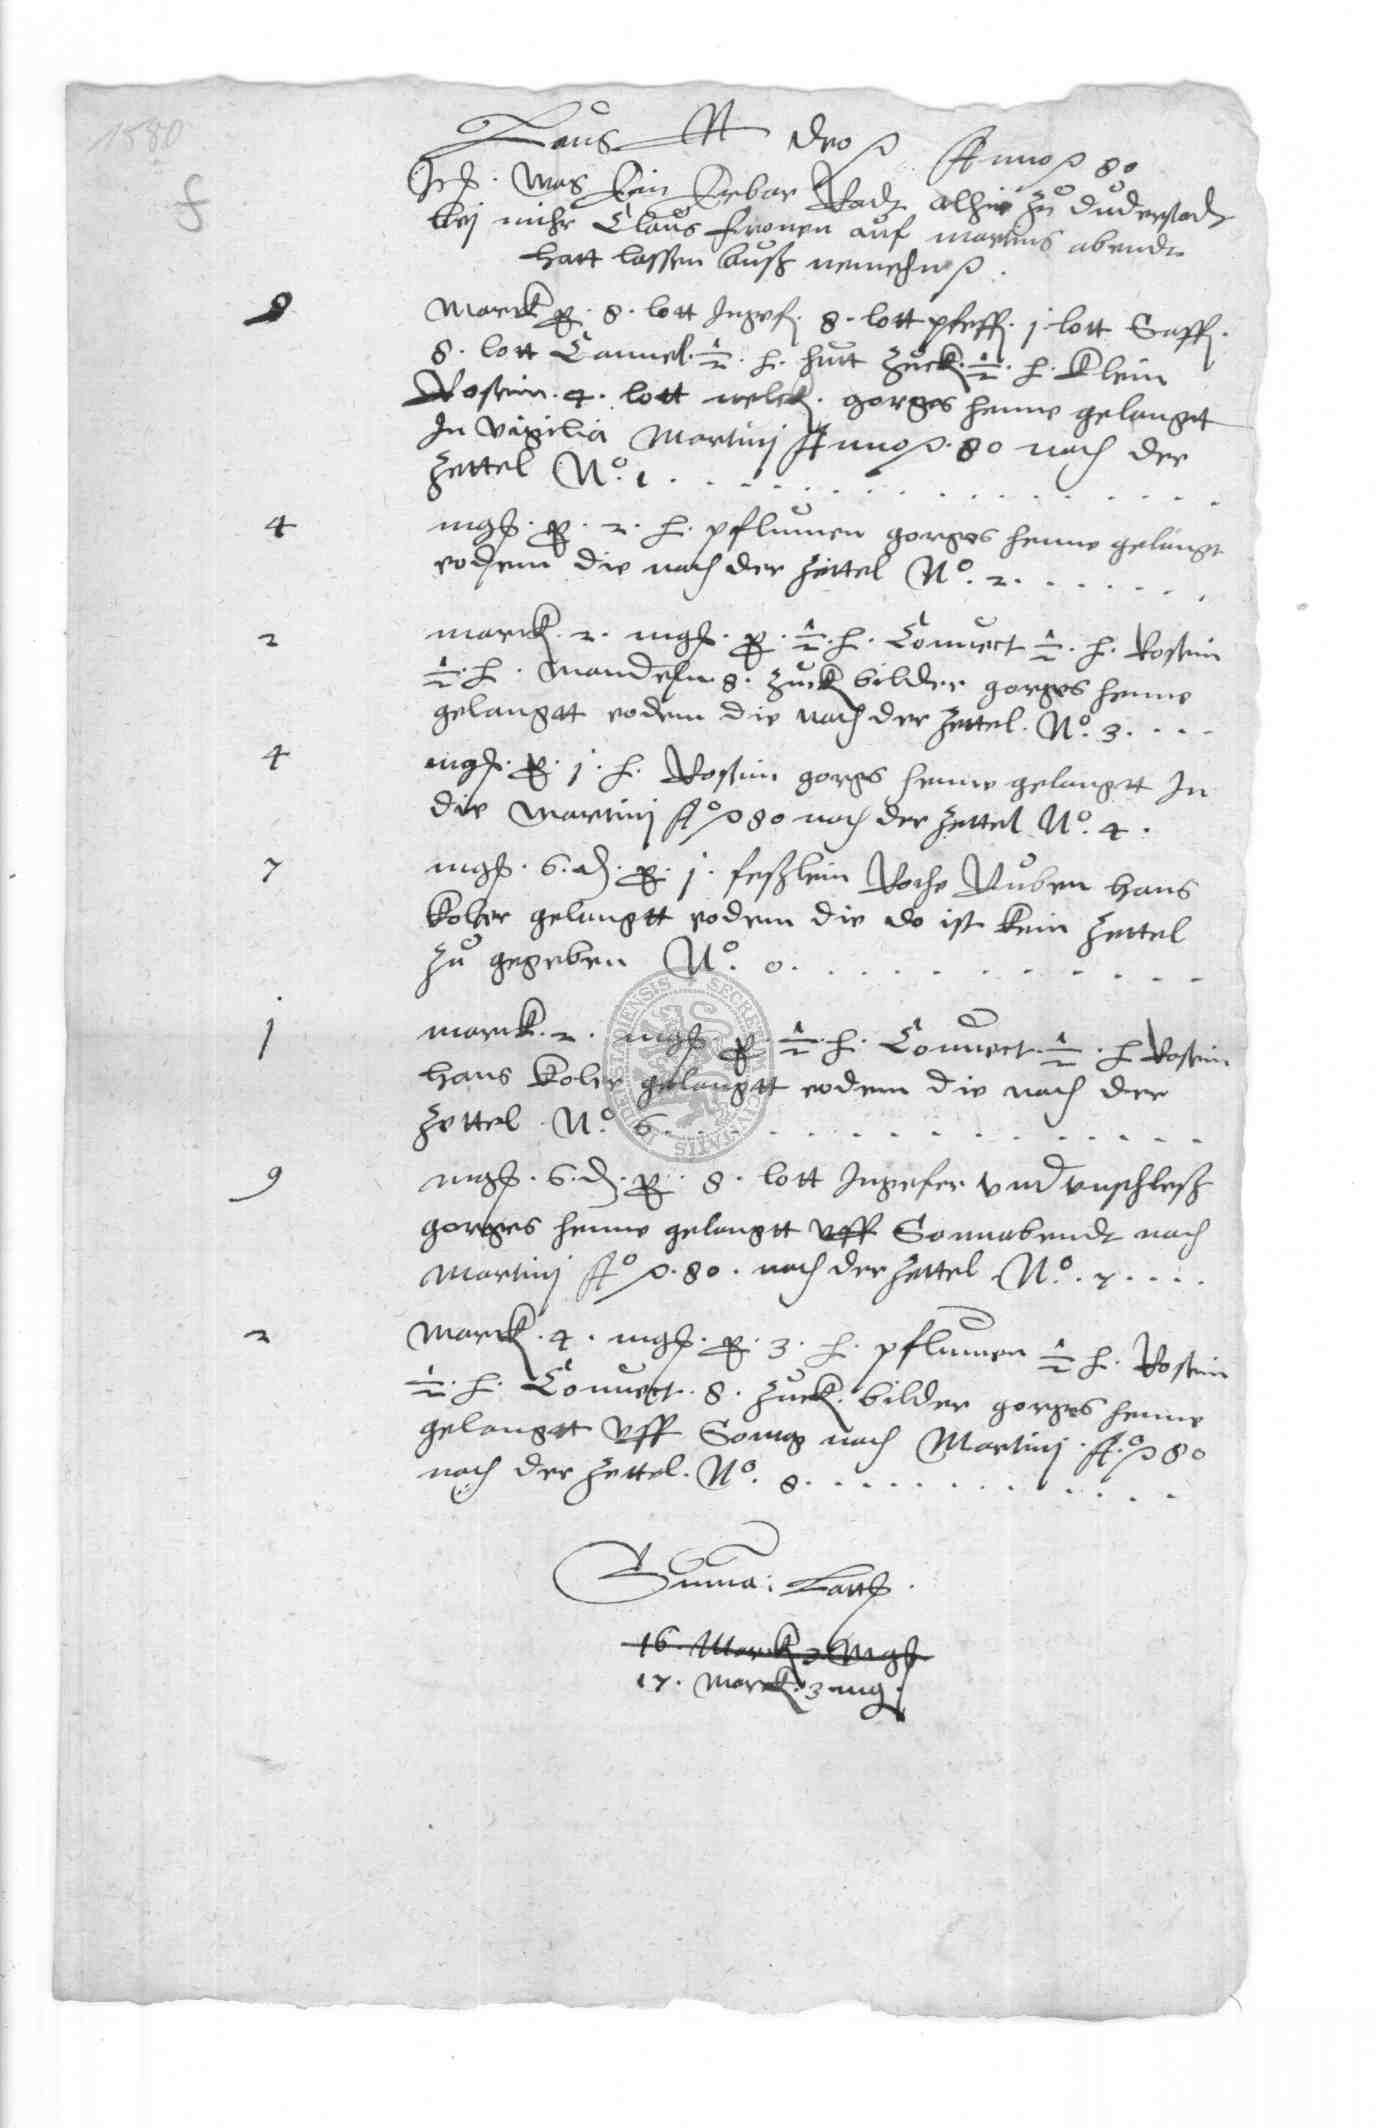 1580
f
Laus Deo Anno 80
Was Ein Erbar Radt alhie zu duderstadt
bej mihr Claus fronen auf martins abendt
hatt lassen auß nemehn
9 Marck 8. lott Ingef. 8. lott pfeff. j lott Saff.
8. lott Cannel. ½. hutt Zuck. ½. klein
Rosein. 4. lott nelck. gorges henne gelangt
In vigilia Martinj Anno 80 nach der
Zettel No. 1
4 mgß. 2. pflumen gorges henne gelangt
eodem die nach der Zettel No. 2.
2 marck. 2. mgß. ½. Confect ½. Rosein
½. Mandeln. 8. Zuck bilder gorges henne
gelangtt eodem die nach der Zettel. No. 3.
4 mgß. j. Rosein gorges henne gelangtt In
die Martinj Ao 80 nach der Zettel No. 4.
7 mgß. 6. d. j. feßlein Rohe Ruben hans
koler gelangtt eodem die do ist kein Zettel
zu gegeben No. 0.
j marck. 2. mgß ½. Confect. ½. Rosein
hans koler gelangtt eodem die nach der
Zettel. No. 6.
9 mgß. 6. d. 8. lott Ingefer vnd vnschleß
gorges henne gelangtt vff Sonnabendt nach
Martinj Ao. 80. nach der Zettel No. 7.
2 Marck. 4. mgß. 3. pflumen ½ Rosein
½. Confect. 8. Zuck. bilder gorges henne
gelangtt vff Sontag nach Martinj. Ao 80
nach der Zettel. No. 8.
Summa: Latts.
16. Marck 2 Mgß
17. Marck. 3 mg.